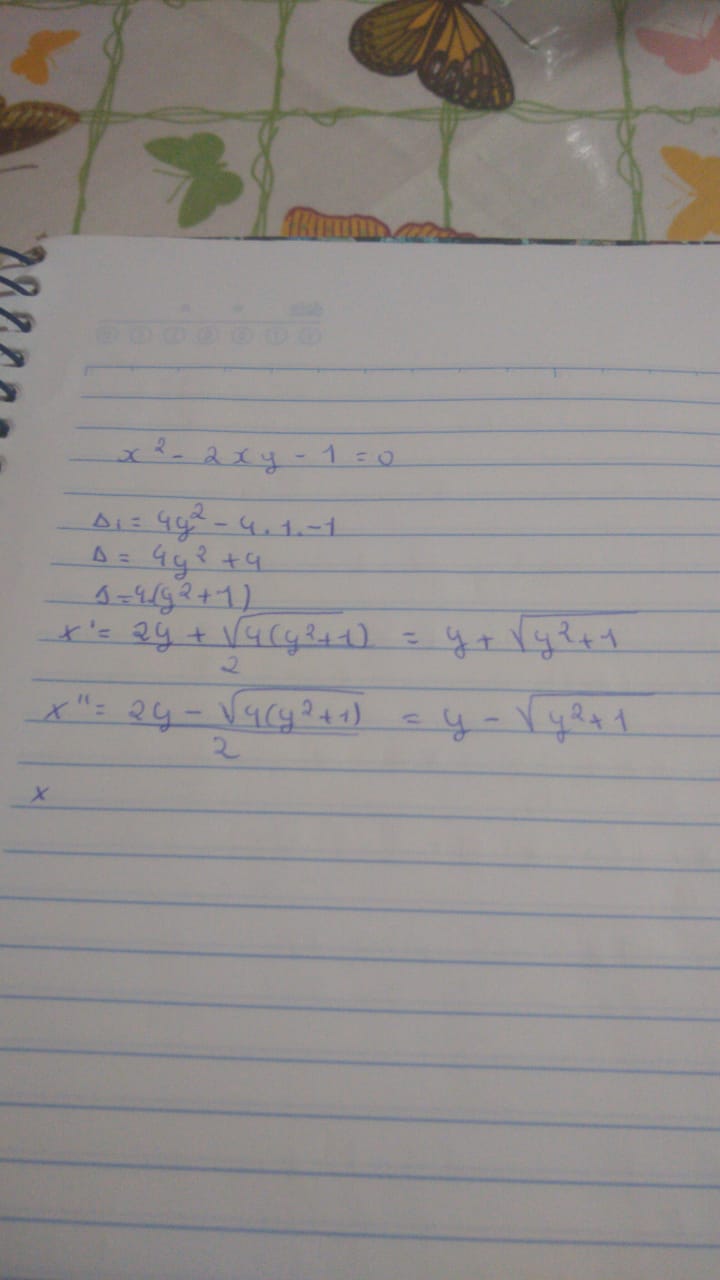 x² - 2xy - 1 = 0
Δ₁ = 4y² - 4.1.-1
Δ = 4y² + 4
Δ = 4(y² + 1)
x' = 2y + √4(y²+1) / 2 = y + √y²+1
x" = 2y - √4(y²+1) / 2 = y - √y²+1
x